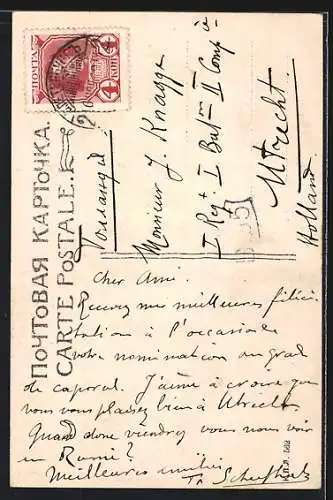 ПОЧТА
4 КОП 4
ПОЧТОВАЯ КАРТОЧКА.
CARTE POSTALE.
Monsieur J. Knagge
I Regt. I Bat. II Comp
Utrecht.
Holland
Cher Ami.
Recevez mes meilleures félici-
tations à l'occasion de
votre nomination au grad
de caporal. J'aime à croire que
vous vous plaisez bien à Utrecht.
Quand donc viendrez vous nous voir
en Russie?
Meilleures amitiés